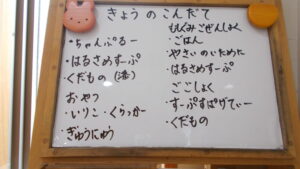 きょうのこんだて
・ちゃんぷるー
・はるさめすーぷ
・くだもの
おやつ
・いりこ・くらっかー
・ぎゅうにゅう
もぐもぐごぜんしょく
・ごはん
・やさいのいためた
・はるさめすーぷ
ごごしょく
・すーぷすぱげてぃー
・くだもの